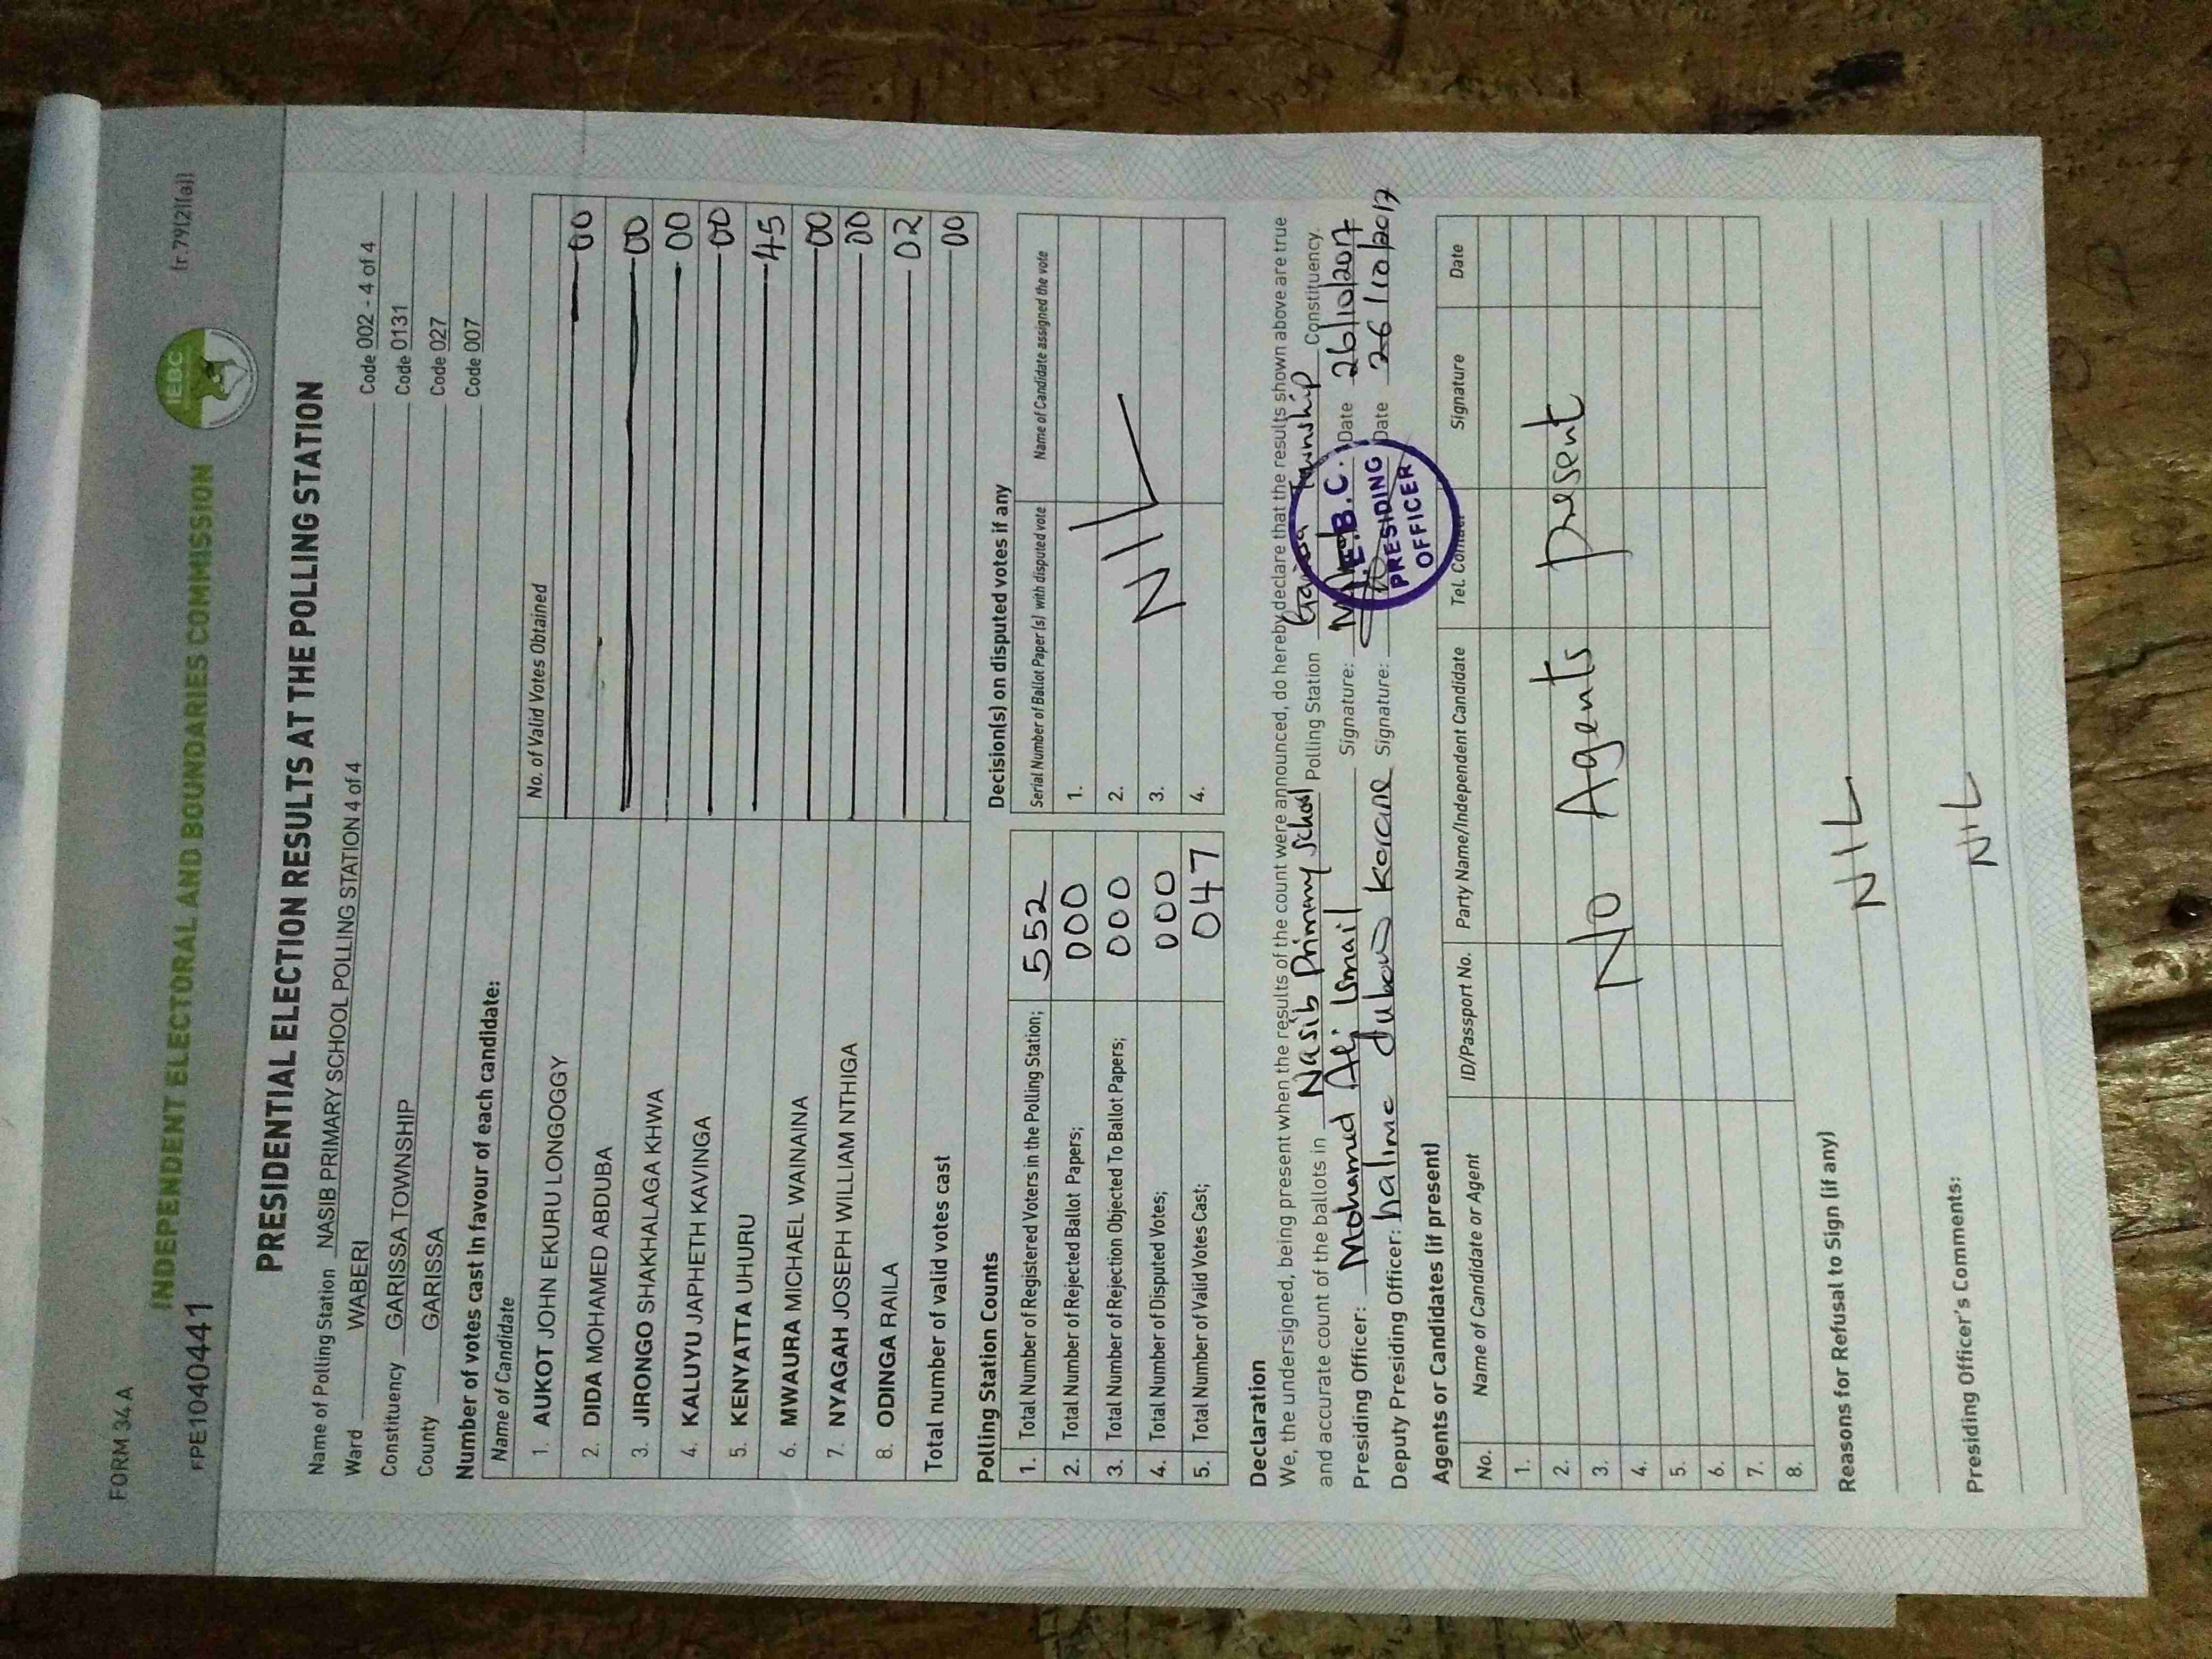 FORM 34A
(r.79(2)(a))
FPE1040441
INDEPENDENT ELECTORAL AND BOUNDARIES COMMISSION
IEBC
PRESIDENTIAL ELECTION RESULTS AT THE POLLING STATION
Name of Polling Station NASIB PRIMARY SCHOOL POLLING STATION 4 of 4 Code 002 - 4 of 4
Ward WABERI Code 0131
Constituency GARISSA TOWNSHIP Code 027
County GARISSA Code 007
Number of votes cast in favour of each candidate:
Name of Candidate No. of Valid Votes Obtained
1. AUKOT JOHN EKURU LONGOGGY 00
2. DIDA MOHAMED ABDUBA 00
3. JIRONGO SHAKHALAGA KHWA 00
4. KALUYU JAPHETH KAVINGA 00
5. KENYATTA UHURU 45
6. MWAURA MICHAEL WAINAINA 00
7. NYAGAH JOSEPH WILLIAM NTHIGA 00
8. ODINGA RAILA 02
Total number of valid votes cast 00
Polling Station Counts
1. Total Number of Registered Voters in the Polling Station; 552
2. Total Number of Rejected Ballot Papers; 000
3. Total Number of Rejection Objected To Ballot Papers; 000
4. Total Number of Disputed Votes; 000
5. Total Number of Valid Votes Cast; 047
Decision(s) on disputed votes if any
Serial Number of Ballot Paper (s) with disputed vote Name of Candidate assigned the vote
1.
2. NIL
3.
4.
Declaration
We, the undersigned, being present when the results of the count were announced, do hereby declare that the results shown above are true
and accurate count of the ballots in Nasib Primary School Polling Station Garissa Township Constituency.
Presiding Officer: Mohamed Ali Ismail Signature: Date 26/10/2017
Deputy Presiding Officer: halima dubow korane Signature: Date 26/10/2017
I.E.B.C.
PRESIDING
OFFICER
Agents or Candidates (if present)
No. Name of Candidate or Agent ID/Passport No. Party Name/Independent Candidate Tel. Contact Signature Date
1.
2.
3. No Agents present
4.
5.
6.
7.
8.
Reasons for Refusal to Sign (if any)
NIL
Presiding Officer's Comments:
NIL